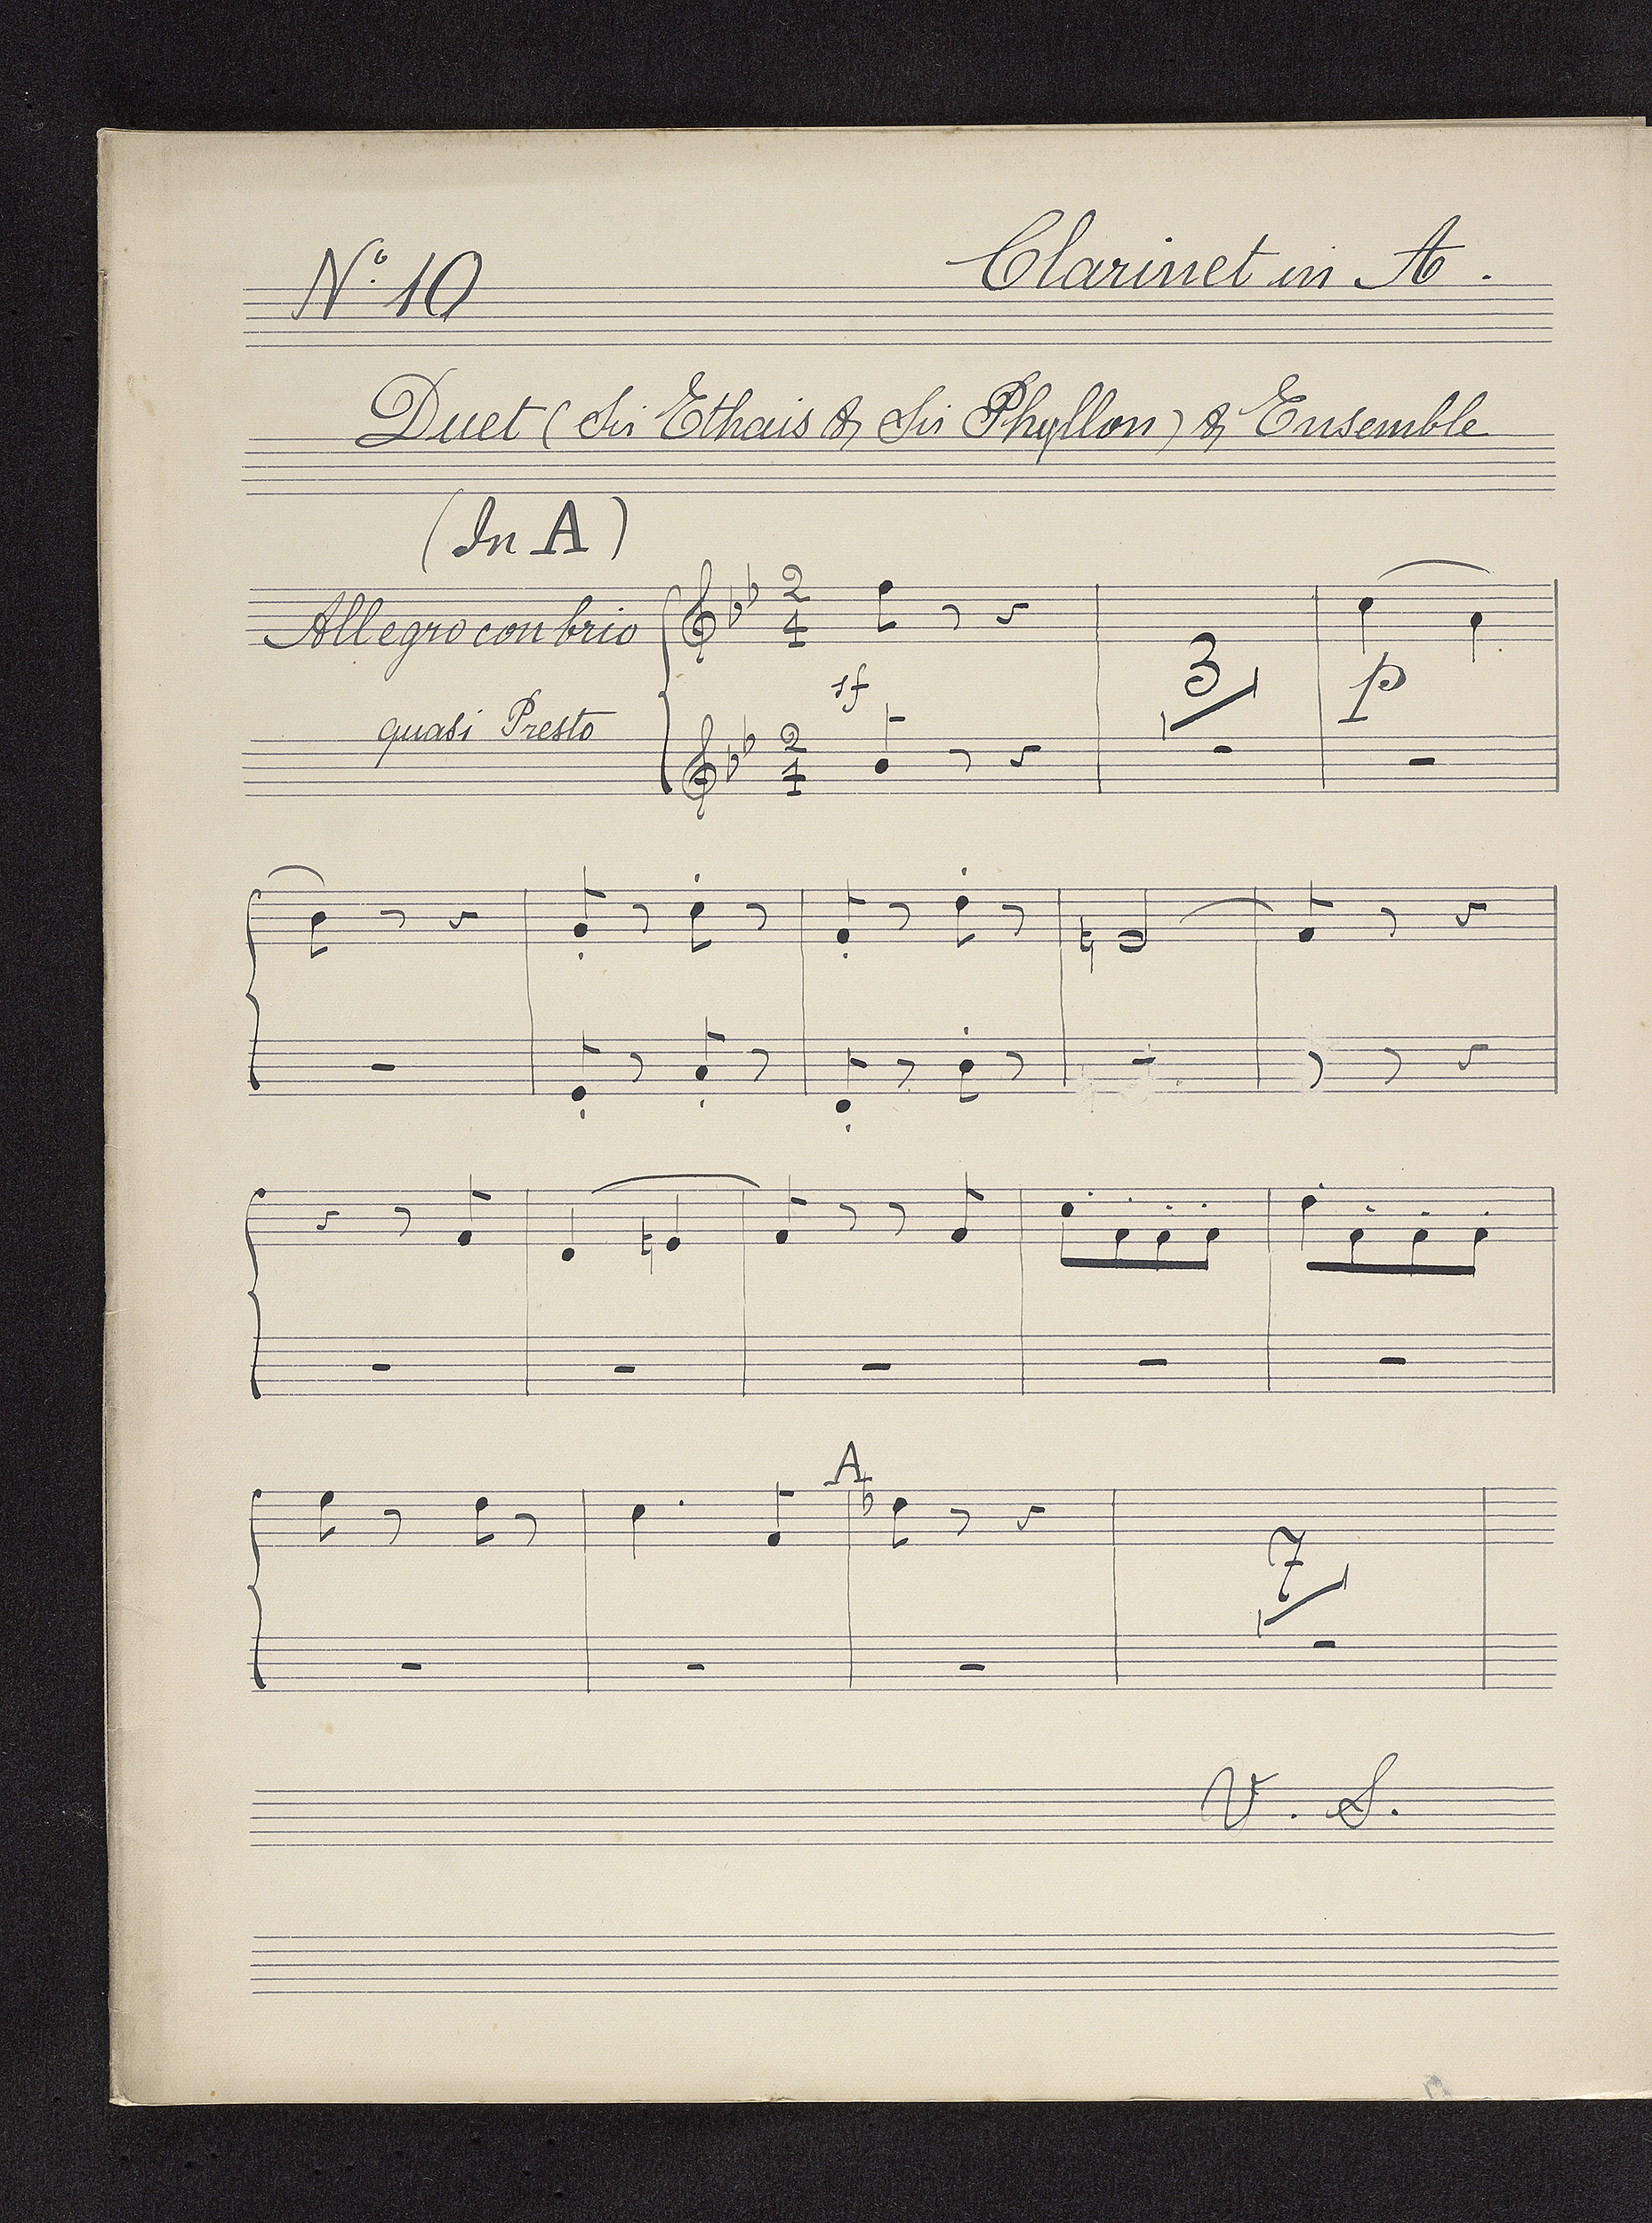 Nº 10
Clarinet in A.
Duet (Sir Ethais & Sir Phyllon) & Ensemble
(In A)
Allegro con brio
quasi Presto
2
4
sf
3
p
2
4
A
7
V. S.